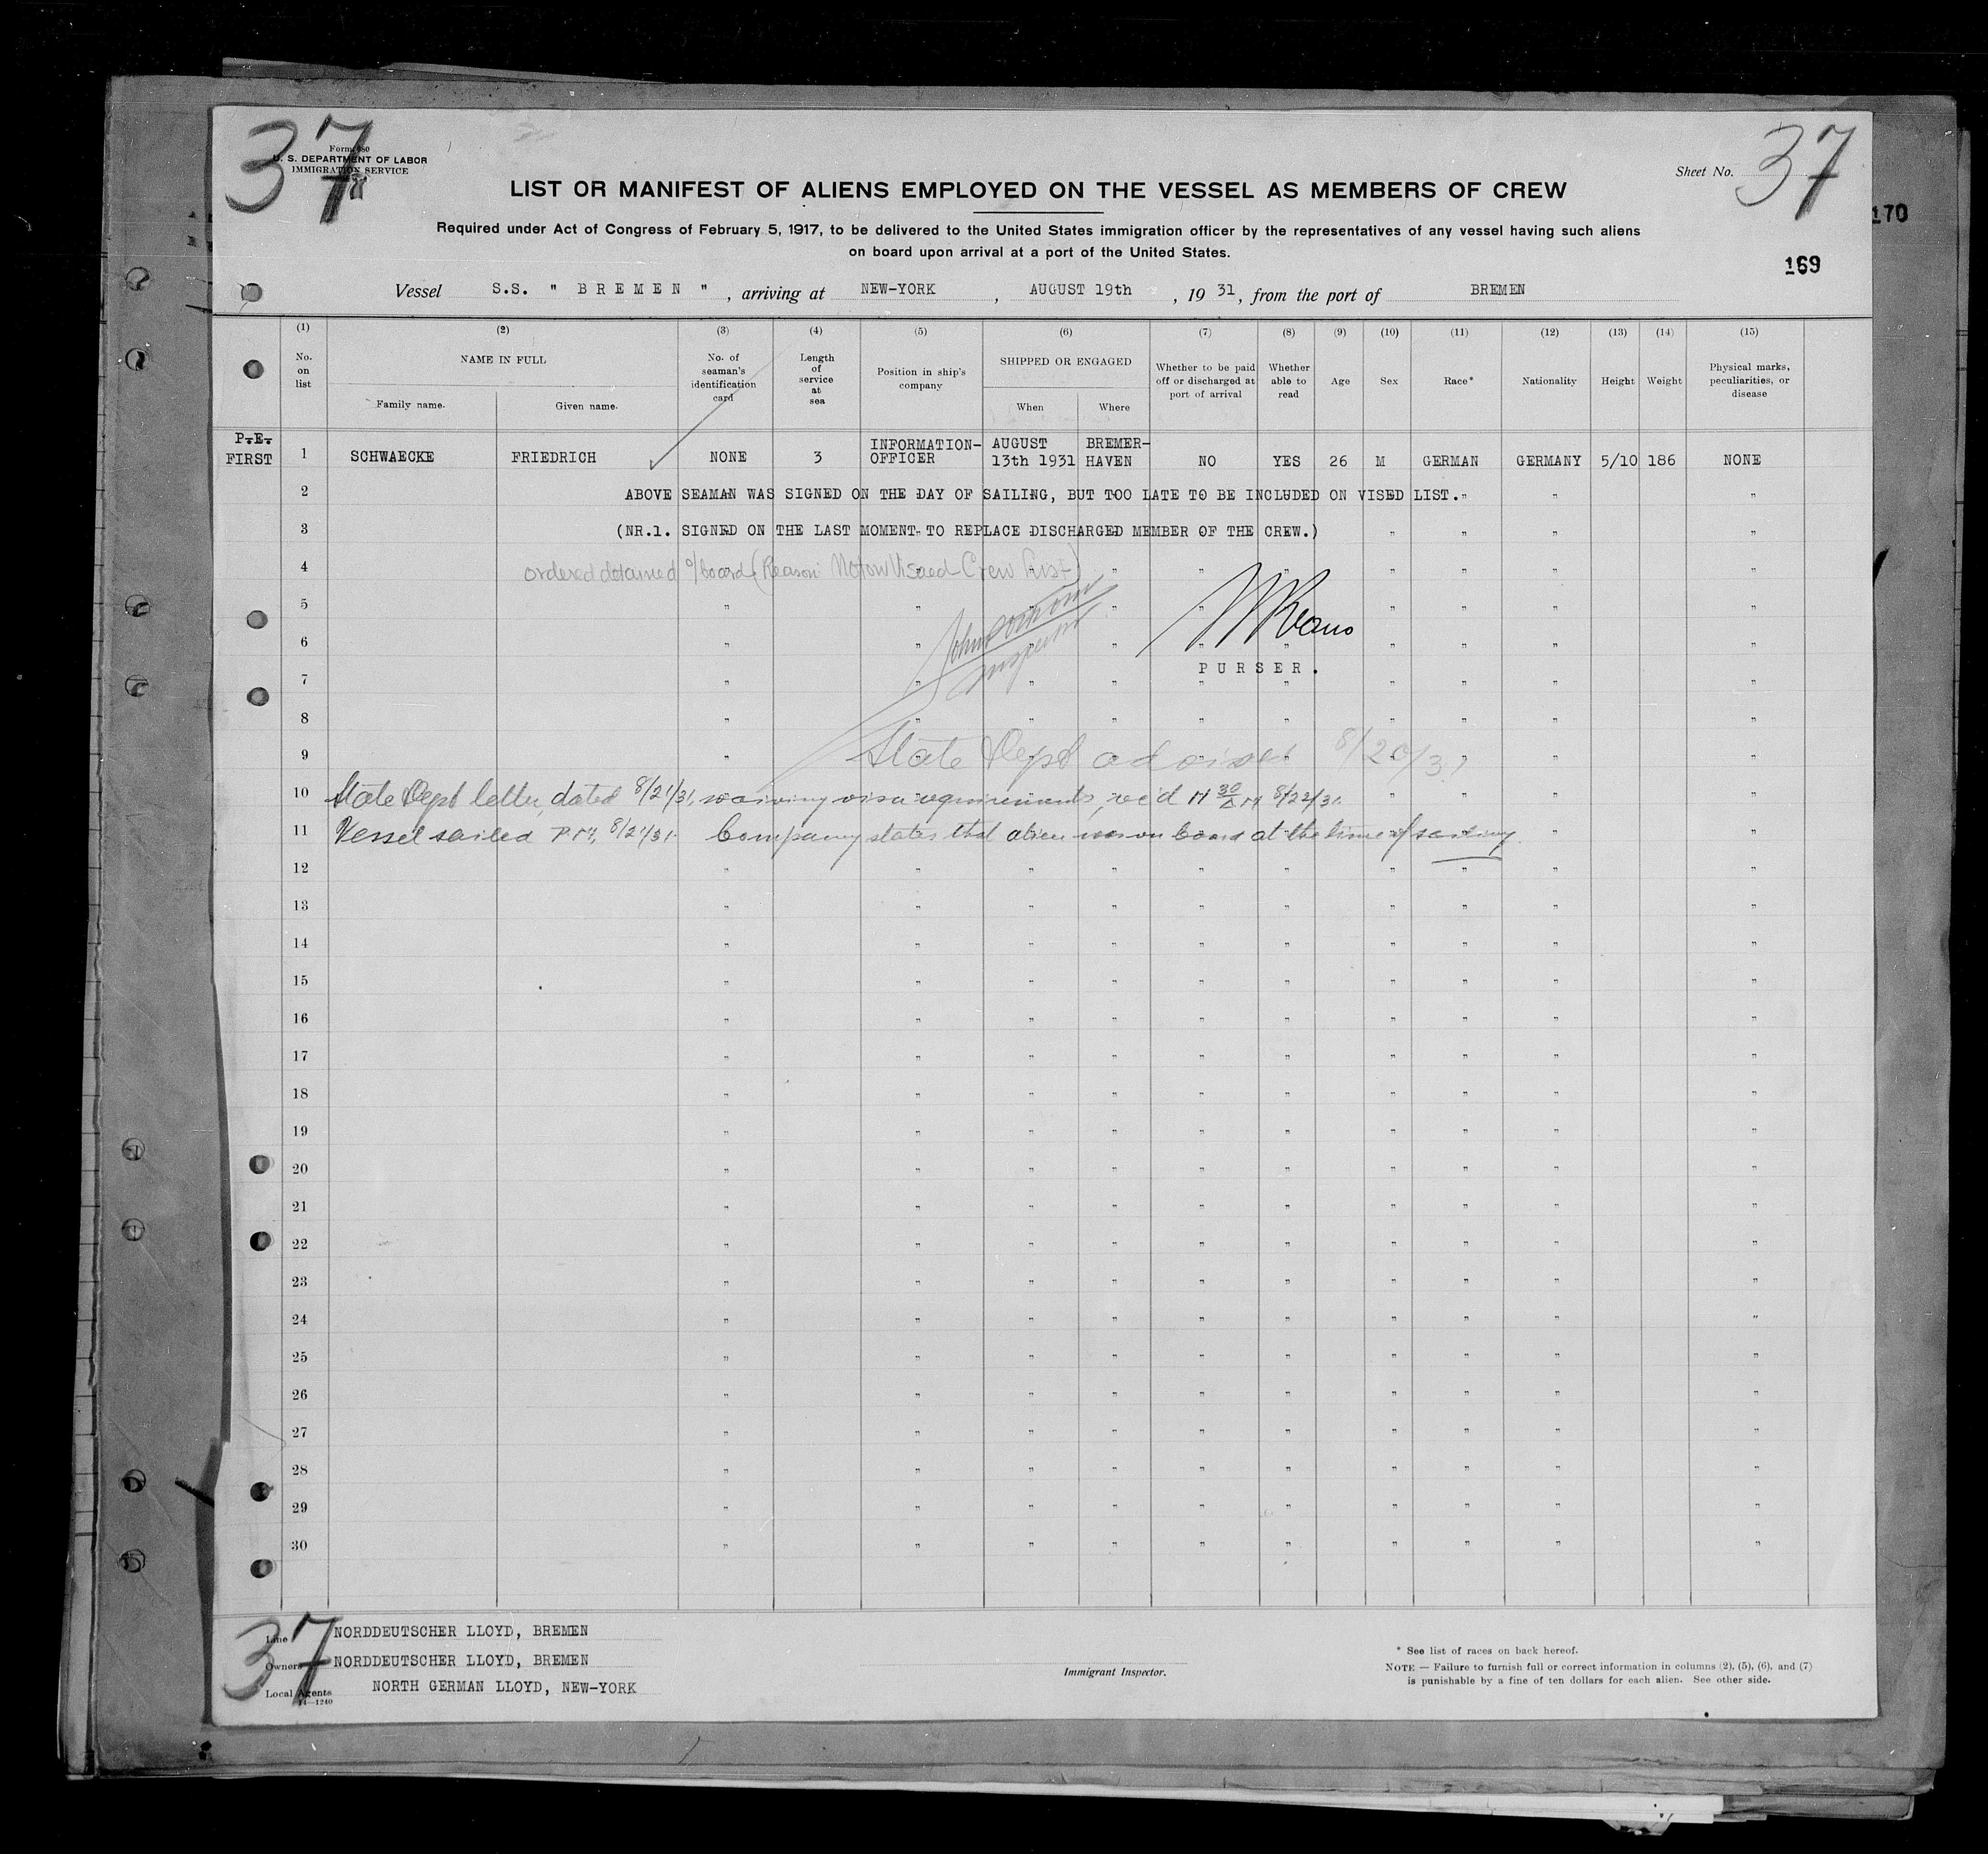 37
Form 680
U. S. DEPARTMENT OF LABOR
IMMIGRATION SERVICE
Sheet No. 37
LIST OR MANIFEST OF ALIENS EMPLOYED ON THE VESSEL AS MEMBERS OF CREW
170
Required under Act of Congress of February 5, 1917, to be delivered to the United States immigration officer by the representatives of any vessel having such aliens
on board upon arrival at a port of the United States.
169
Vessel S.S. " B R E M E N " , arriving at NEW-YORK , AUGUST 19th , 19 31, from the port of BREMEN
(1) (2) (3) (4) (5) (6) (7) (8) (9) (10) (11) (12) (13) (14) (15)
No. on list
NAME IN FULL
Family name. Given name.
No. of seaman's identification card
Length of service at sea
Position in ship's company
SHIPPED OR ENGAGED
When Where
Whether to be paid off or discharged at port of arrival
Whether able to read
Age
Sex
Race*
Nationality
Height
Weight
Physical marks, peculiarities, or disease
P.E. FIRST 1 SCHWAECKE FRIEDRICH NONE 3 INFORMATION-OFFICER AUGUST 13th 1931 BREMER-HAVEN NO YES 26 M GERMAN GERMANY 5/10 186 NONE
2 ABOVE SEAMAN WAS SIGNED ON THE DAY OF SAILING, BUT TOO LATE TO BE INCLUDED ON VISED LIST. " " "
3 (NR.1. SIGNED ON THE LAST MOMENT TO REPLACE DISCHARGED MEMBER OF THE CREW.) " " " "
4 ordered detained o/board (Reason: Not on Visaed Crew List) " " " " " " "
5 " " " " " " " " " "
6 " " " " " " " " " "
Inspector
PURSER.
7 " " " " " " " " " "
8 " " " " " " " " " "
9 " State Dept advises 8/20/31 " " "
10 State Dept letter, dated 8/21/31, waiving visa requirements, rec'd 8/22/31. " " " "
11 Vessel sailed P.M. 8/21/31. Company states that alien was on board at the time of sailing. " "
12 " " " " " " " " " "
13 " " " " " " " " " "
14 " " " " " " " " " "
15 " " " " " " " " " "
16 " " " " " " " " " "
17 " " " " " " " " " "
18 " " " " " " " " " "
19 " " " " " " " " " "
20 " " " " " " " " " "
21 " " " " " " " " " "
22 " " " " " " " " " "
23 " " " " " " " " " "
24 " " " " " " " " " "
25 " " " " " " " " " "
26 " " " " " " " " " "
27 " " " " " " " " " "
28 " " " " " " " " " "
29 " " " " " " " " " "
30 " " " " " " " " " "
37
Line NORDDEUTSCHER LLOYD, BREMEN
Owners NORDDEUTSCHER LLOYD, BREMEN
Local Agents NORTH GERMAN LLOYD, NEW-YORK
14—1240
Immigrant Inspector.
* See list of races on back hereof.
NOTE — Failure to furnish full or correct information in columns (2), (5), (6), and (7)
is punishable by a fine of ten dollars for each alien. See other side.